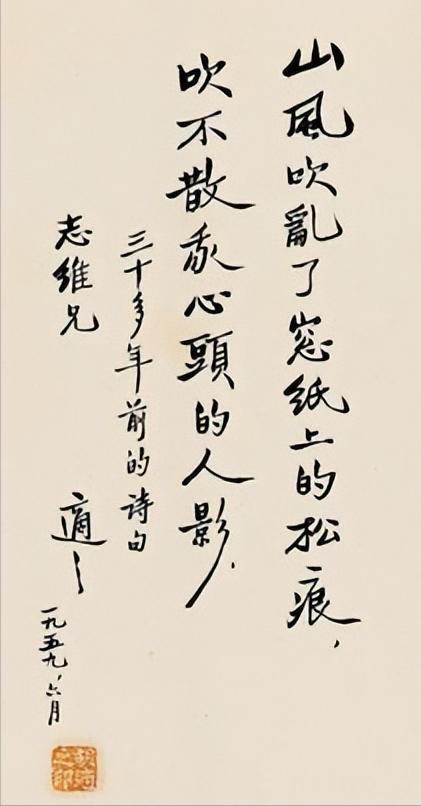 山風吹亂了窓紙上的松痕，
吹不散我心頭的人影．
三十多年前的诗句
志維兄
適之
一九五九，六月
胡適之印